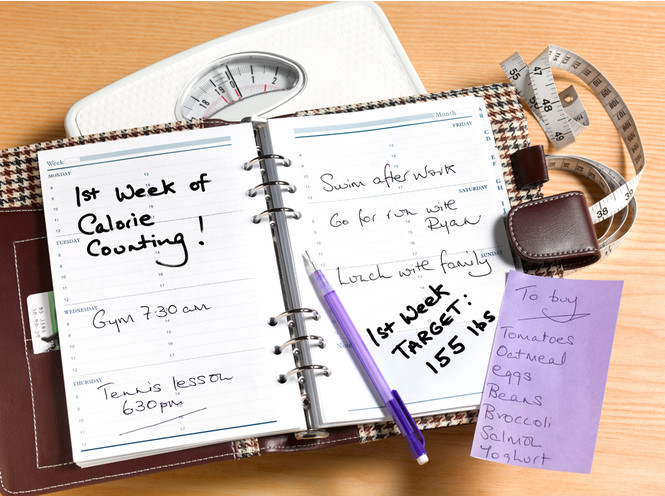 Week
MONDAY
1st Week of
Calorie
Counting!
TUESDAY
WEDNESDAY
Gym 7.30 am
THURSDAY
Tennis lesson
6.30pm
Month
FRIDAY
Swim after work
SATURDAY
Go for run with
Ryan
SUNDAY
Lunch with family
1st Week
TARGET:
155 lbs
Notes
To buy
Tomatoes
Oatmeal
eggs
Beans
Broccoli
Salmon
Yoghurt